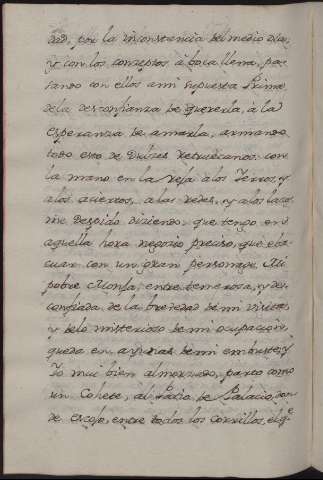 dad, por la inconstancia del medio dia,
y con los conceptos à boca llena, pac
tando con ellos a mi supuesta Prima
de la desconfianza de quererla, a la
esperanza de amarla, armando
todo esto de Dulzes Retruecanos: con
la mano en la reja a los Ierros, y
a los aciertos, a las redes, y a los lazos
me despido diziendo, que tengo en
aquella hora negozio preciso, que eba
cuar con un gran personage. Mi
pobre Monja, entre temerosa, y des
confiada, de la brebedad de mi visita,
y de lo misterioso de mi ocupacion,
queda en ayunas de mi embuste, y
Yo mui bien almorzado, parto como
un Cohete, al Patio de Palacio, don
de escojo, entre todos los corrillos, el qe